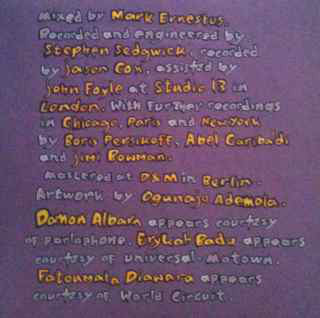 mixed by Mark Ernestus.
Recorded and engineered by
Stephen Sedgwick, recorded
by Jason Cox, assisted by
John Foyle at Studio 13 in
London. With further recordings
in Chicago, Paris and New York
by Boris Persikoff, Abel Garibaldi
and Jim Bowman.
mastered at D&M in Berlin.
Artwork by Ogunajo Ademola.
Damon Albarn appears courtesy
of parlophone. Erykah Badu appears
courtesy of universal motown.
Fatoumata Diawara appears
courtesy of World Circuit.